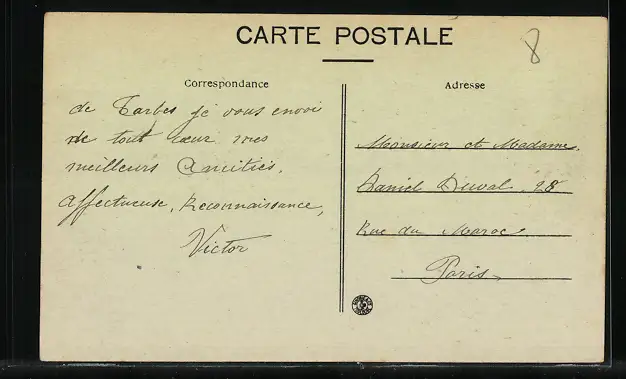 CARTE POSTALE
8
Correspondance
de Tarbes je vous envoi
de tout cœur mes
meilleurs Amitiés,
Affectueuse, Reconnaissance,
Victor
Adresse
Monsieur et Madame,
Daniel Duval. 28
Rue du Maroc.
Paris